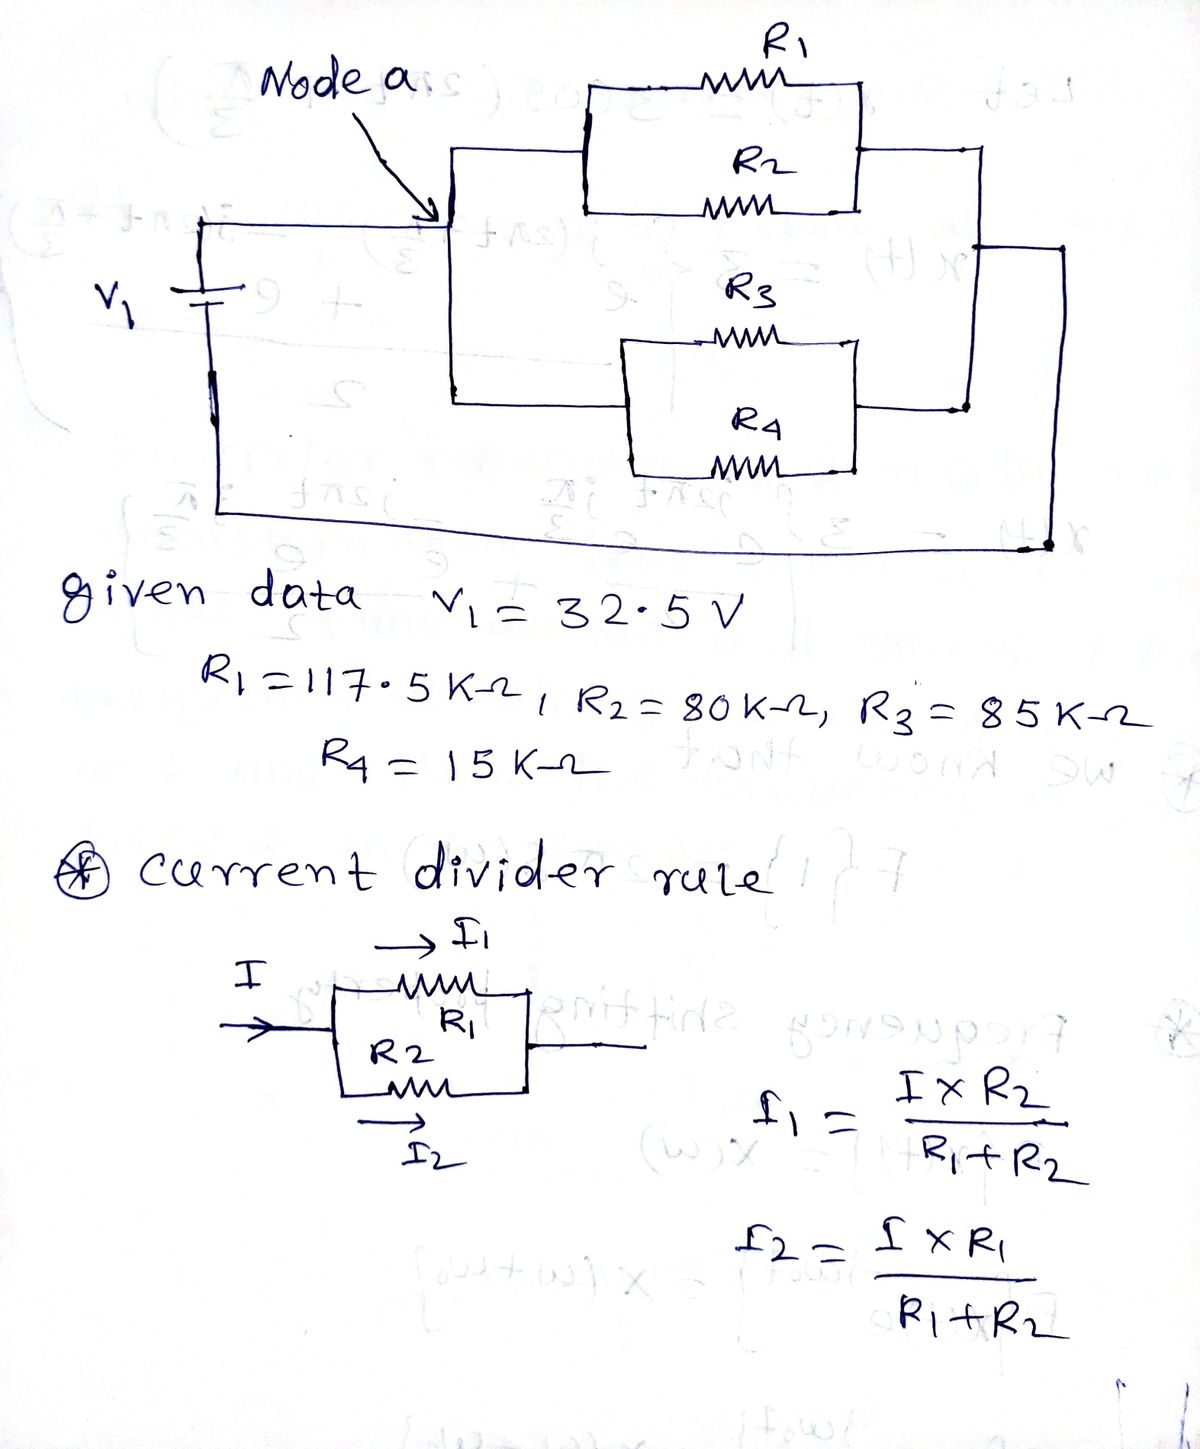 Node a
R1
R2
V1
R3
R4
given data V1 = 32.5 V
R1 = 117.5 KΩ, R2 = 80 KΩ, R3 = 85 KΩ
R4 = 15 KΩ
⊛ current divider rule
I1
I
R1
R2
I2
I1 = I × R2 / R1 + R2
I2 = I × R1 / R1 + R2